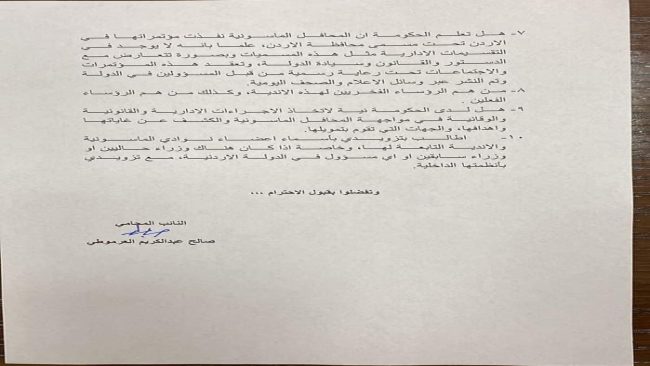 ٧- هل تعلم الحكومة ان المحافل الماسونية نفذت مؤتمراتها في
الاردن تحت مسمى محافظة الاردن، علما بانه لا يوجد في
التقسيمات الادارية مثل هذه المسميات وبصورة تتعارض مع
الدستور والقانون وسيادة الدولة، وتعقد هذه المؤتمرات
والاجتماعات تحت رعاية رسمية من قبل المسؤولين في الدولة
وتم النشر عبر وسائل الاعلام والصحف اليومية.
٨- من هم الرؤساء الفخريين لهذه الاندية، وكذلك من هم الرؤساء
الفعلين .
٩- هل لدى الحكومة نية لاتخاذ الاجراءات الادارية والقانونية
والوقائية في مواجهة المحافل الماسونية والكشف عن غاياتها
واهدافها، والجهات التي تقوم بتمويلها.
١٠- اطالب بتزويدي بأسماء اعضاء نوادي الماسونية
والاندية التابعة لها، وخاصة اذا كان هناك وزراء حاليين او
وزراء سابقين او اي مسؤول في الدولة الاردنية، مع تزويدي
بانظمتها الداخلية.
وتفضلوا بقبول الاحترام ...
النائب المحامي
صالح عبدالكريم العرموطي